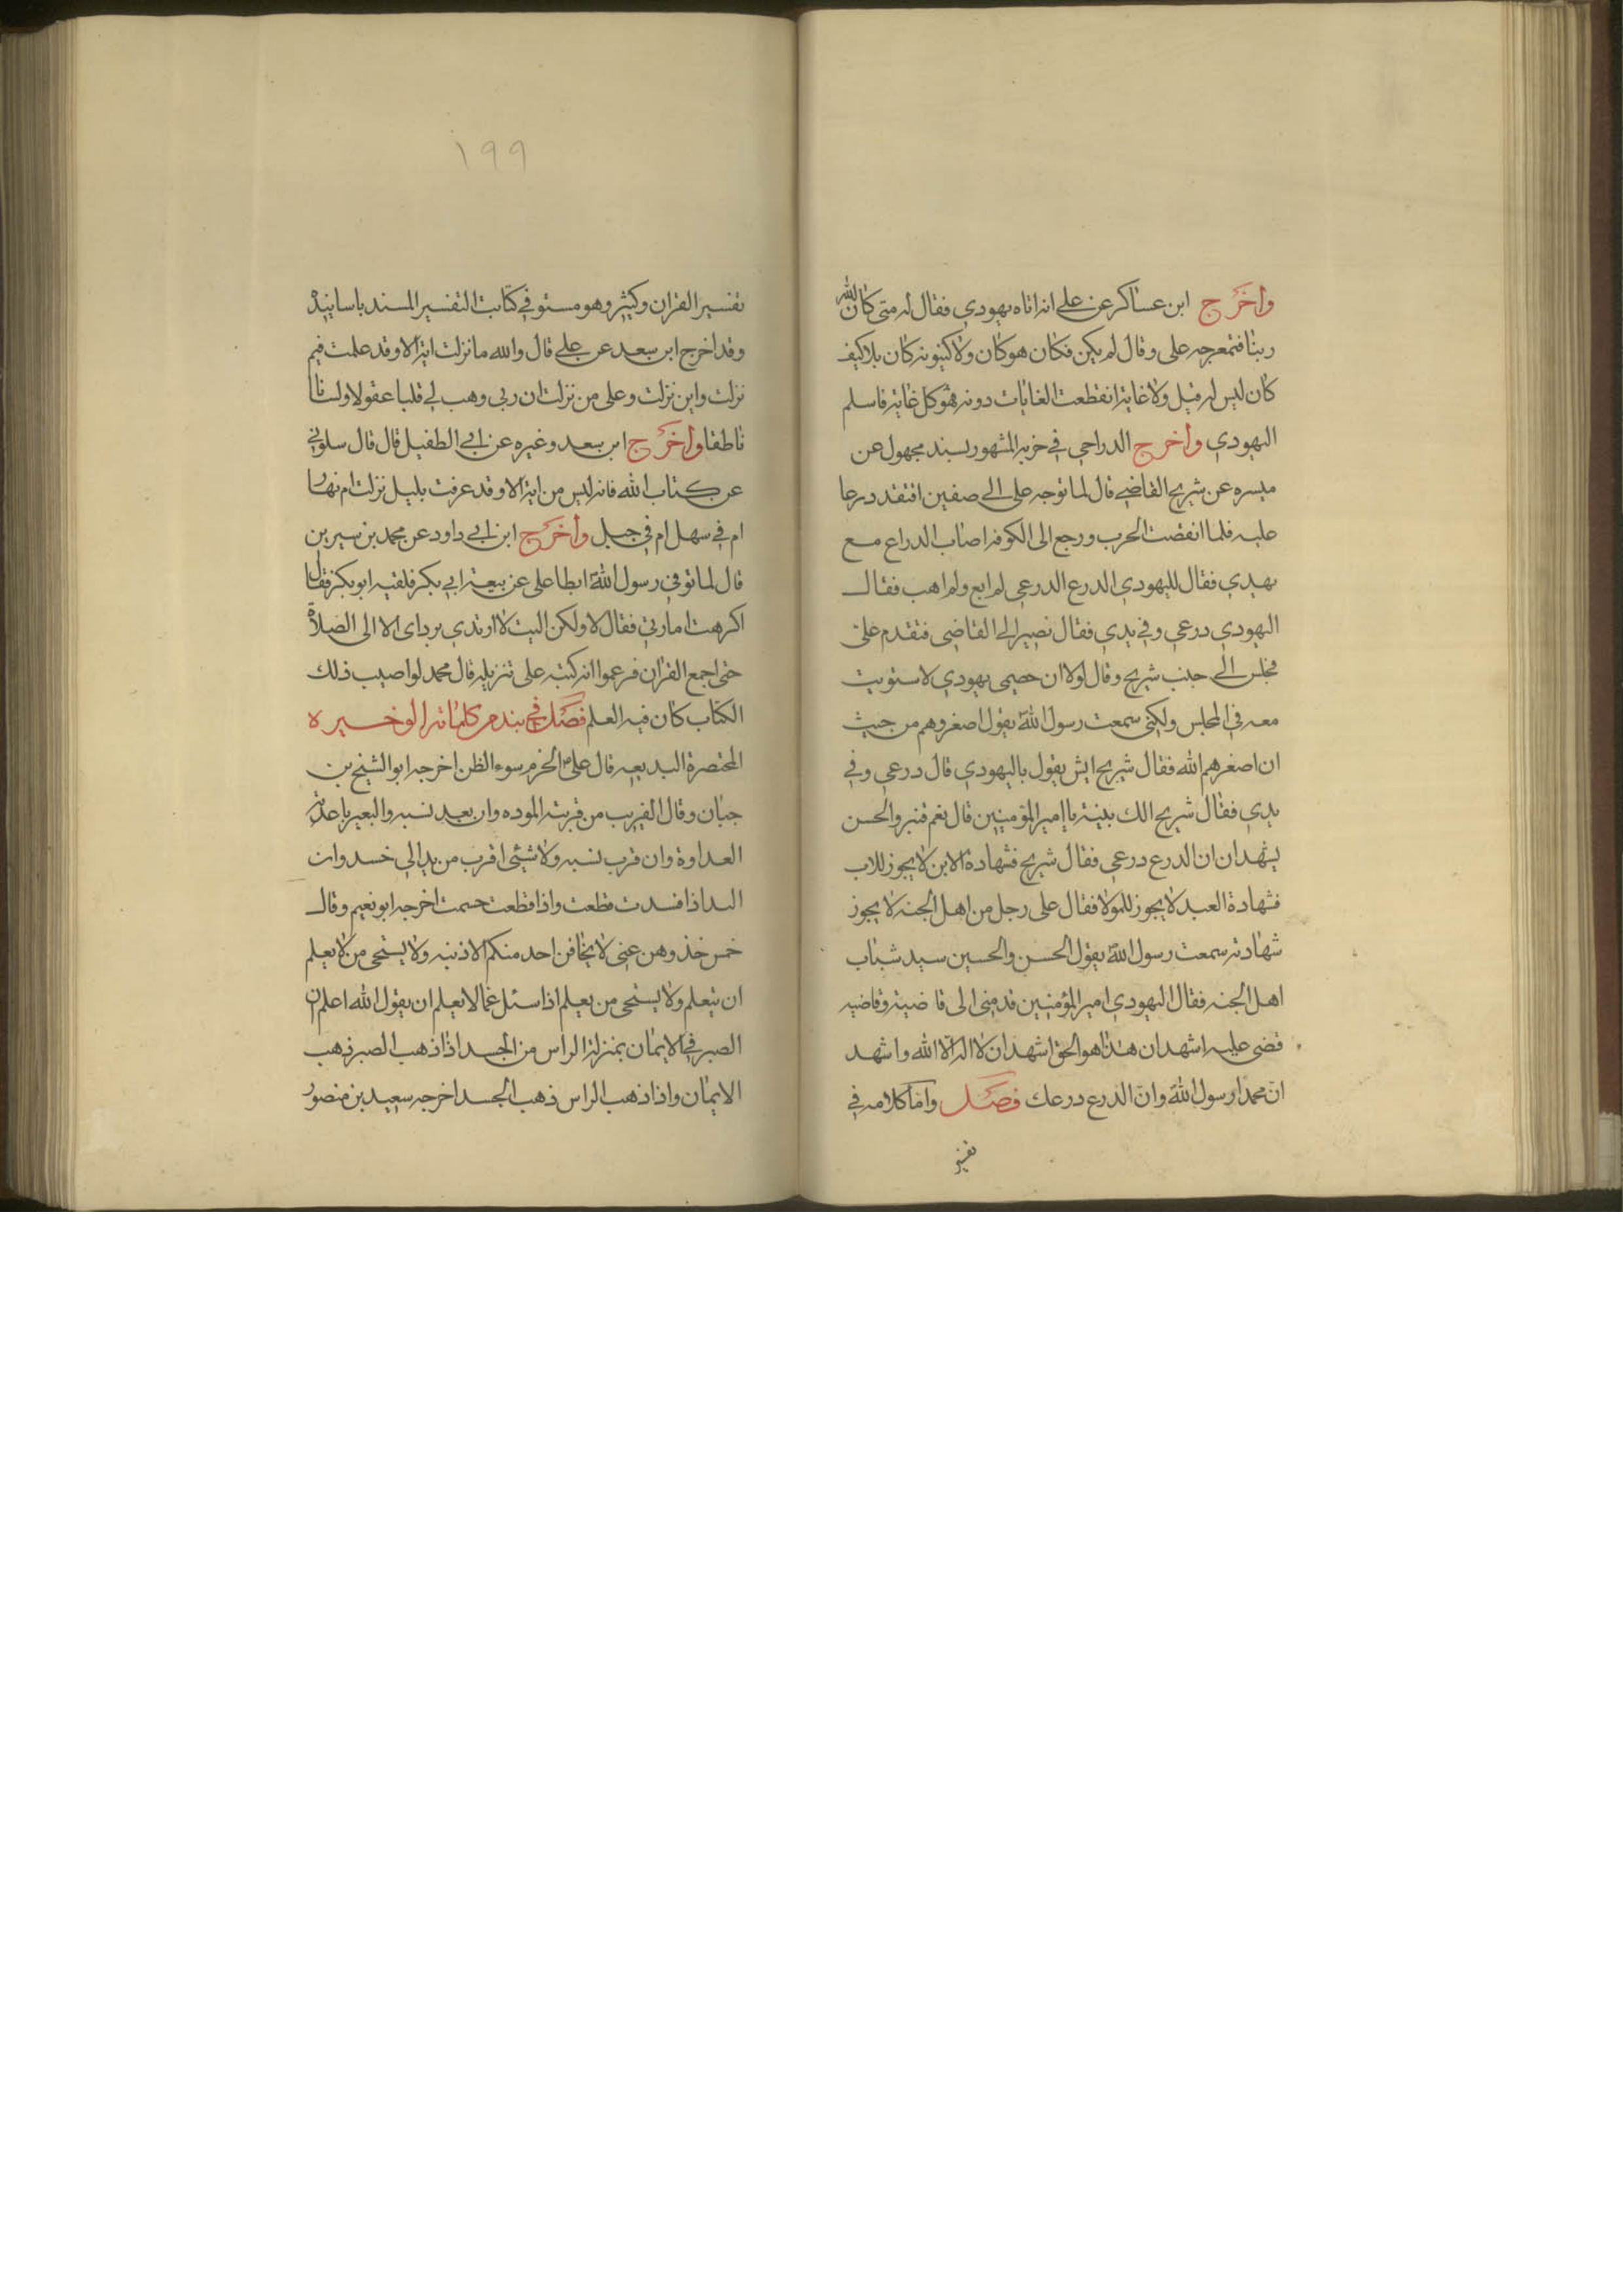 وأخرج ابن عساكر عن علي انه اتاه يهودي فقال له متى كان الله
ربنا فتمعر وجه علي وقال لم يكن فكان هو كان ولا كينونه كان بلا كيف
كان ليس له قبل ولا غاية انقطعت الغايات دونه فهو كل غاية فاسلم
اليهودي وأخرج الدراجي في جزيه المشهور بسند مجهول عن
ميسره عن شريح القاضي قال لما توجه علي الى صفين افتقد درعا
عليه فلما انقضت الحرب ورجع الى الكوفه اصاب الدراع مع
يهدي فقال لليهودي الدرع الدرعي لم ابع ولم اهب فقال
اليهودي درعي وفي يدي فقال نصير الى القاضي فتقدم على
فجلس الى جنب شريح وقال لولا ان خصمي يهودي لاستويت
معه في المجلس ولكني سمعت رسول الله يقول اصغروهم من حيث
ان اصغرهم الله فقال شريح ايش يقول باليهودي قال درعي وفي
يدي فقال شريح الك بينة يا امير المؤمنين قال نعم قنبر والحسن
يشهدان ان الدرع درعي فقال شريح فشهادة الابن لا يجوز للاب
فشهادة العبد لا يجوز للمولا فقال على رجل من اهل الجنه لا يجوز
شهادته سمعت رسول الله يقول الحسن والحسين سيد شباب
اهل الجنه فقال اليهودي امير المؤمنين قدمني الى قاضيه وقاضيه
قضى عليه اشهد ان هذا هو الحق اشهد ان لا اله الا الله واشهد
ان محمدا رسول الله وان الدرع درعك فصل واما كلامه في
تفسير
١٩٩
تفسير القران وكثير وهو مستو في كتابت التفسير المسند باسانيده
وقد اخرج ابن سعد عن علي قال والله ما نزلت اية الا وقد علمت فيم
نزلت واين نزلت وعلى من نزلت ان ربي وهب لي قلبا عقولا ولسانا
ناطقا وأخرج ابن سعد وغيره عن ابي الطفيل قال قال سلوني
عن كتاب الله فانه ليس من اية الا وقد عرفت بليل نزلت ام نهار
ام في سهل ام في جبل وأخرج ابن ابي داود عن محمد بن سيرين
قال لما توفي رسول الله ابطا علي عن بيعة ابي بكر فلقيه ابو بكر فقال
اكرهت امارتي فقال لا ولكن اليت لا ارتدي برداى الا الى الصلاة
حتى اجمع القران فزعموا انه كتبه على تنزيله قال محمد لو اصيب ذلك
الكتاب كان فيه العلم فصل في نبد من كلماته الوخسيره
المختصرة البديعيه قال علي الحزم سوء الظن اخرجه ابو الشيخ بن
حبان وقال القريب من قربته الموده وان بعد نسبه والبعير باعدته
العداوة وان قرب نسبه ولا شيئى اقرب من يد الى خسد وان
اليد اذا فسدت قطعت واذا قطعت حسمت اخرجه ابو نعيم وقال
خمس خذوهن عني لا يخافن احد منكم الا ذنبه ولا يستحى من لا يعلم
ان يتعلم ولا يستحى من يعلم اذا سئل عما لا يعلم ان يقول الله اعلم ان
الصبر في الايمان بمنزلة الراس من الجسد اذا ذهب الصبر ذهب
الايمان واذا ذهب الراس ذهب الجسد اخرجه سعيد بن منصور